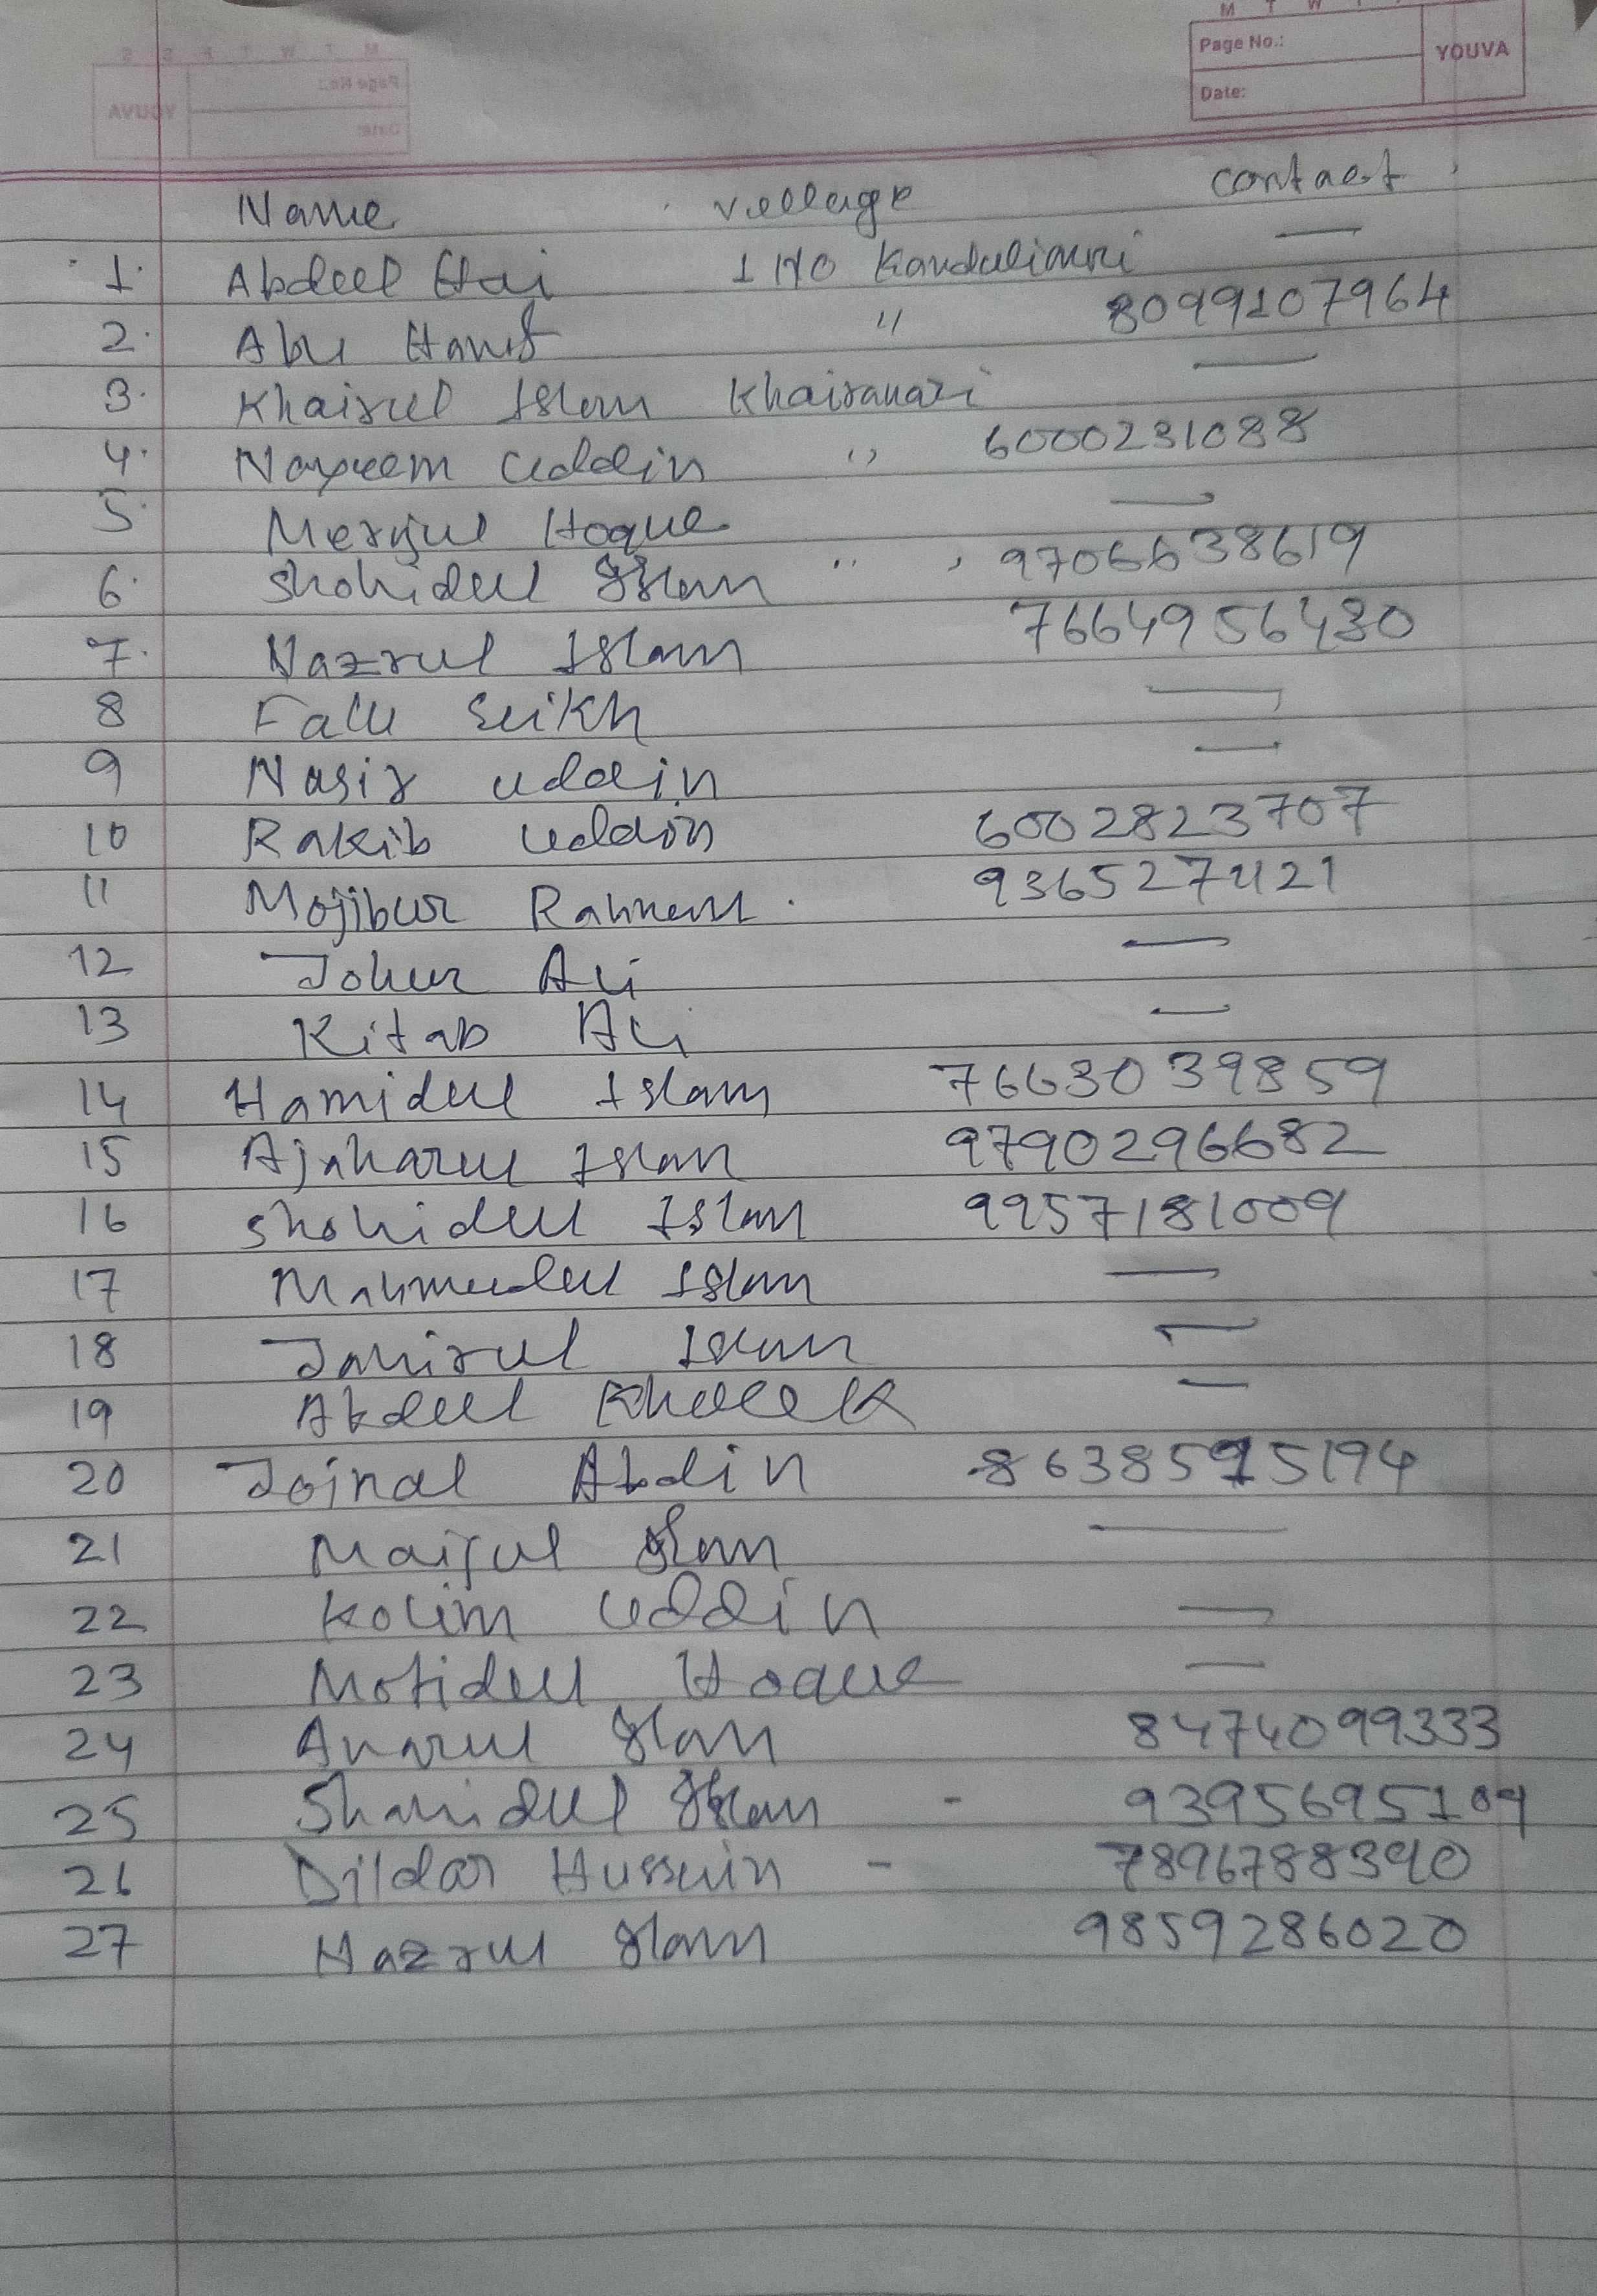 M T W T
Page No.:
YOUVA
Date:
Name village contact
1. Abdul Hai 1 No Kandulimari —
2. Abu Hanif " 8099107964
3. Khairul Islam Khairamari —
4. Nayeem Uddin " 6000231088
5. Merajul Hoque —
6. Shohidul Islam " , 9706638619
7. Nazrul Islam 7664956430
8 Falu Seikh —
9 Nasir uddin —
10 Rakib Uddin 6002823707
11 Mojibur Rahman. 9365274121
12 Johur Ali —
13 Kitab Ali —
14 Hamidul Islam 7663039859
15 Ajaharul Islam 9790296682
16 Shohidul Islam 9957181009
17 Mahmudul Islam —
18 Jahirul Islam —
19 Abdul Khalek —
20 Joinal Abdin 8638595194
21 Islam —
22 Kolim Uddin —
23 Motidul Hoque —
24 Anarul Islam 8474099333
25 Shahidul Islam - 9395695109
26 Dildar Hussain - 7896788390
27 Nazrul Islam 9859286020